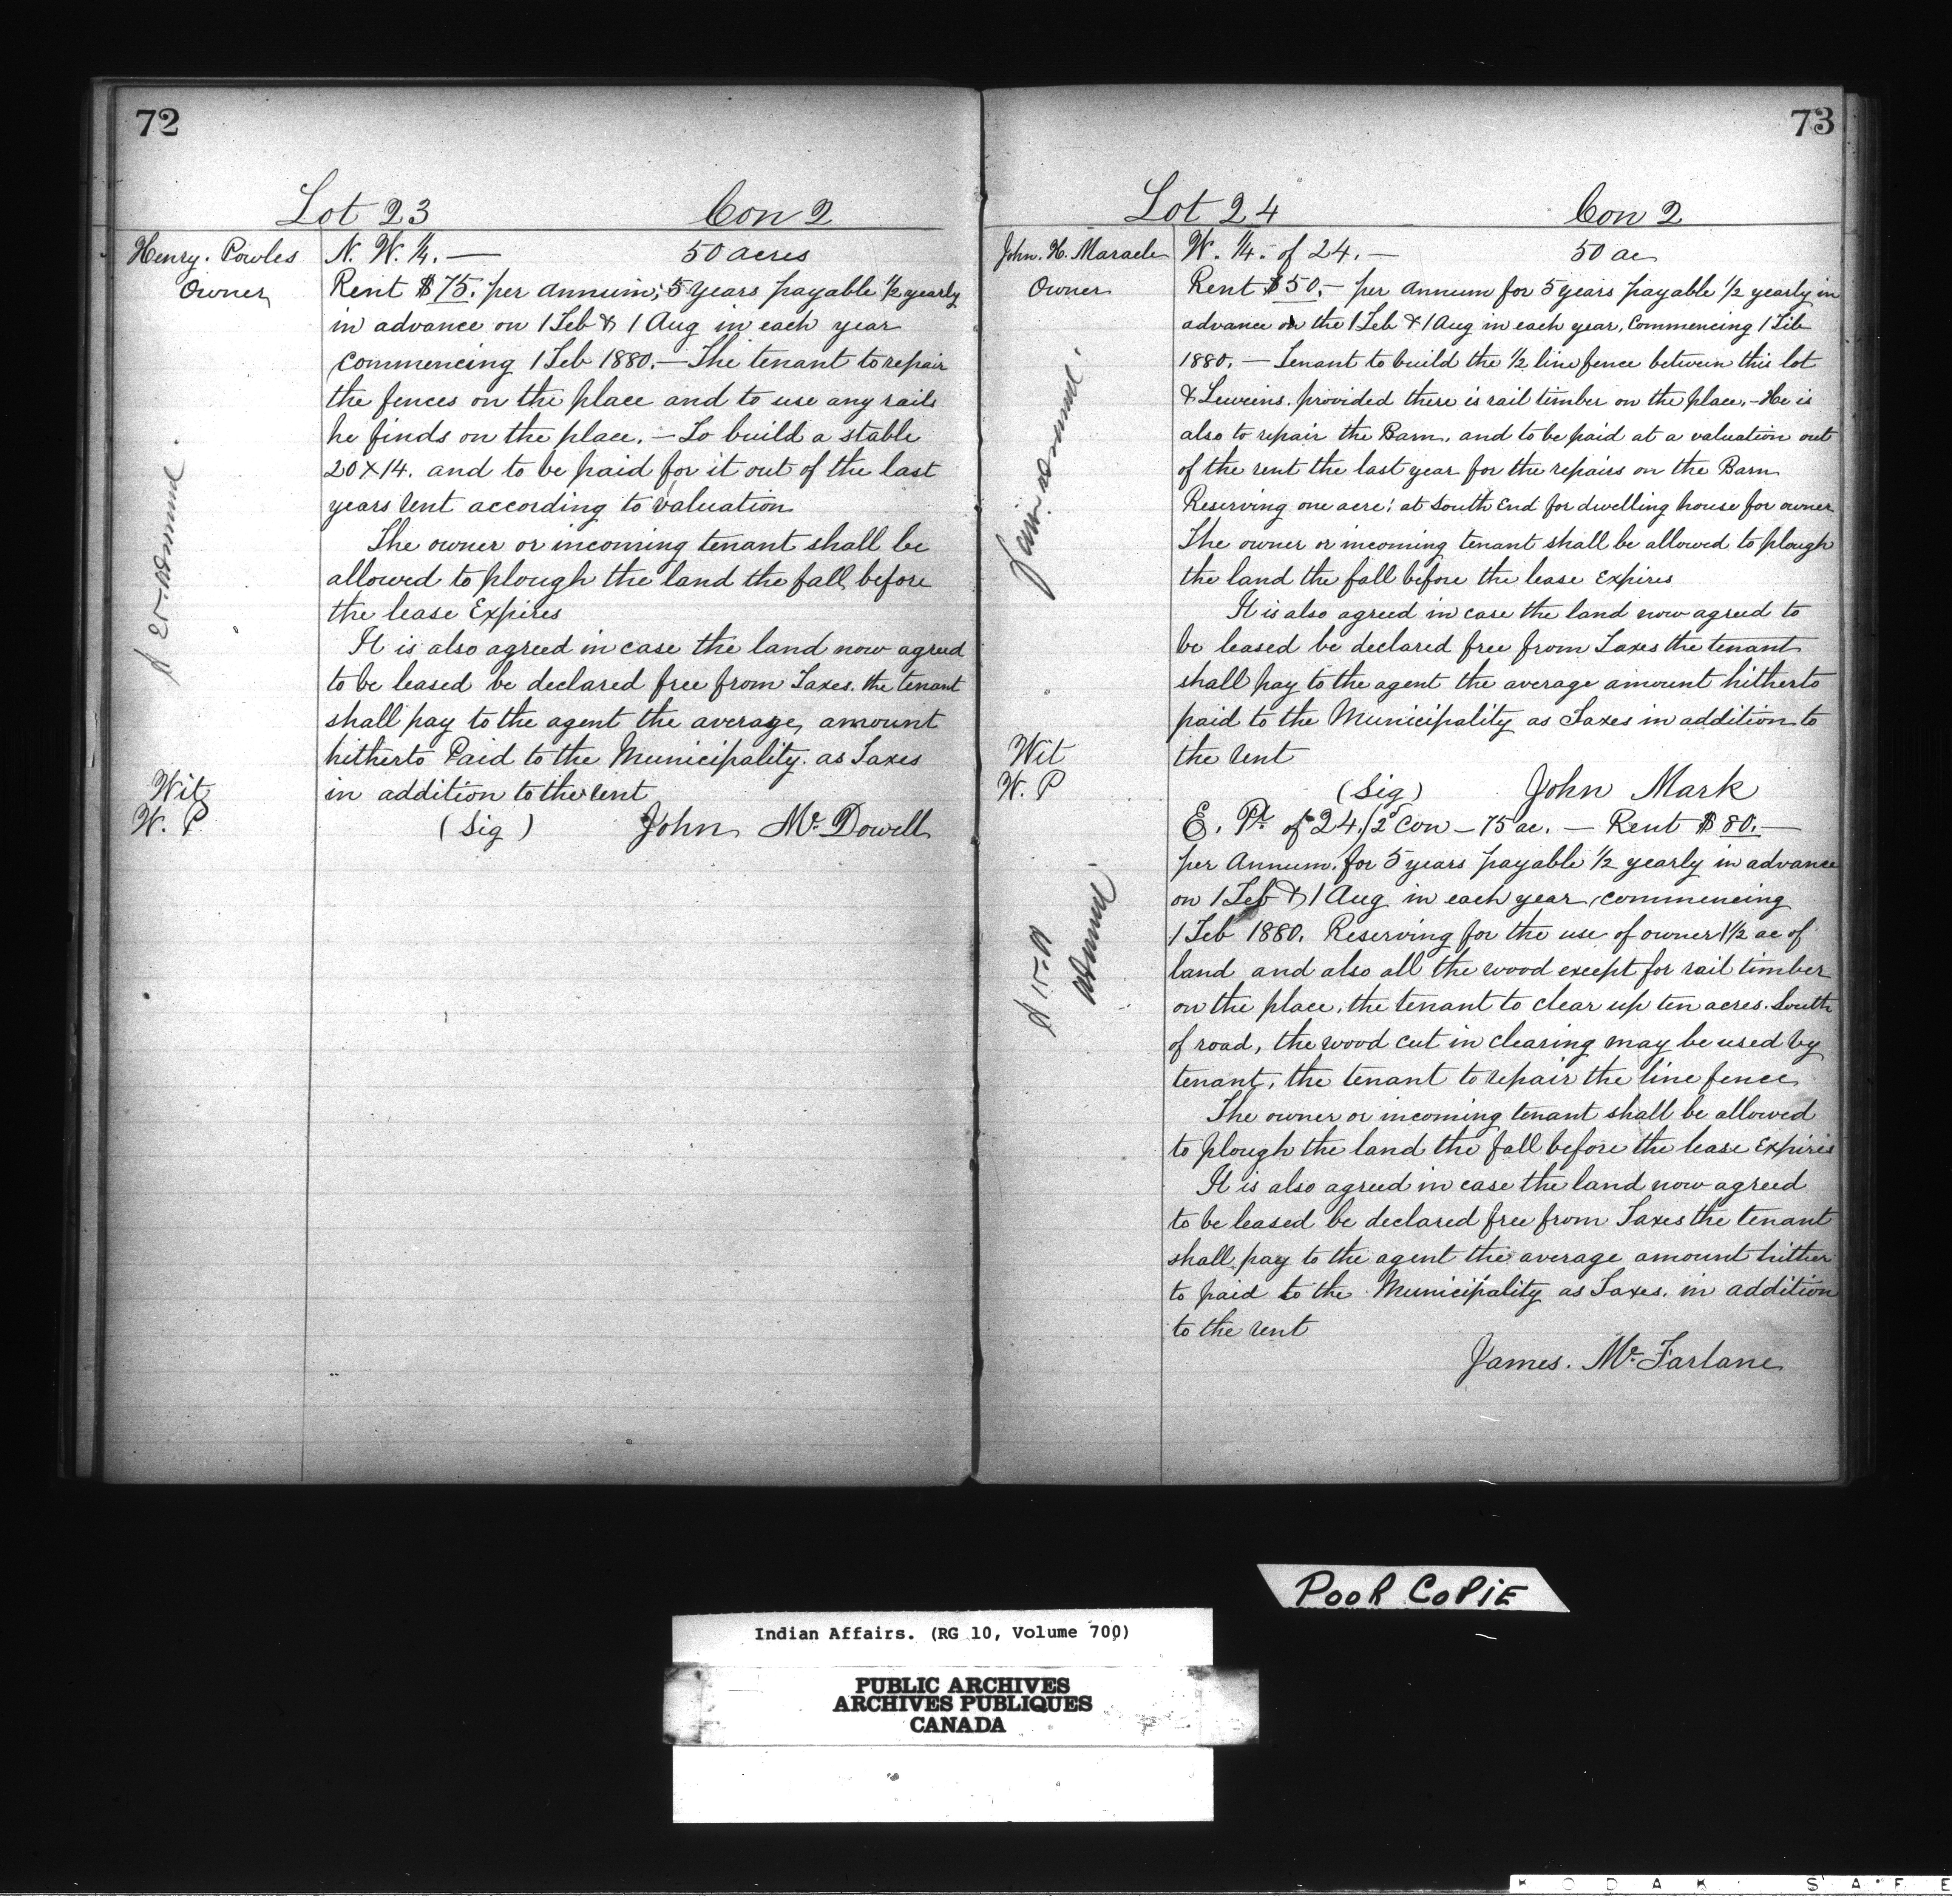 72
Lot 23 Con 2
Henry. Powles
Owner
N. W. ¼. — 50 acres
Rent $75. per annum, 5 years payable ½ yearly
in advance on 1 Feb & 1 Aug in each year
commencing 1 Feb 1880. — The tenant to repair
the fences on the place and to use any rails
he finds on the place. — To build a stable
20 x 14. and to be paid for it out of the last
years rent according to valuation
The owner or incoming tenant shall be
allowed to plough the land the fall before
the lease Expires
It is also agreed in case the land now agreed
to be leased be declared free from Taxes. the tenant
shall pay to the agent the average amount
hitherto Paid to the Municipality. as Taxes
in addition to the rent
Wit
W. P
(Sig) John Mc Dowell
73
Lot 24 Con 2
John. H. Maracle
Owner
W. ¼. of 24. — 50 ac
Rent $50. — per annum for 5 years payable ½ yearly in
advance on the 1 Feb & 1 Aug in each year, Commencing 1 Feb
1880. — Tenant to build the ½ line fence between this lot
& provided there is rail timber on the place. — He is
also to repair the Barn. and to be paid at a valuation out
of the rent the last year for the repairs on the Barn
Reserving one acre; at South End for dwelling house for owner
The owner or incoming tenant shall be allowed to plough
the land the fall before the lease Expires
It is also agreed in case the land now agreed to
be leased be declared free from Taxes the tenant
shall pay to the agent the average amount hitherto
paid to the Municipality as Taxes in addition to
the rent
Wit
W. P
(Sig) John Mark
E. Pt of 24. 2d Con — 75 ac. — Rent $80. —
per Annum. for 5 years payable ½ yearly in advance
on 1 Feb & 1 Aug in each year, commencing
1 Feb 1880. Reserving for the use of owner 1½ ac of
land and also all the wood except for rail timber
on the place, the tenant to clear up ten acres. South
of road, the wood cut in clearing may be used by
tenant, the tenant to repair the line fence
The owner or incoming tenant shall be allowed
to plough the land the fall before the lease Expires
It is also agreed in case the land now agreed
to be leased be declared free from Taxes the tenant
shall pay to the agent the average amount hither
to paid to the Municipality as Taxes. in addition
to the rent
James. Mc Farlane
POOR COPIE
Indian Affairs. (RG 10, Volume 700)
PUBLIC ARCHIVES
ARCHIVES PUBLIQUES
CANADA
KODAK SAFE